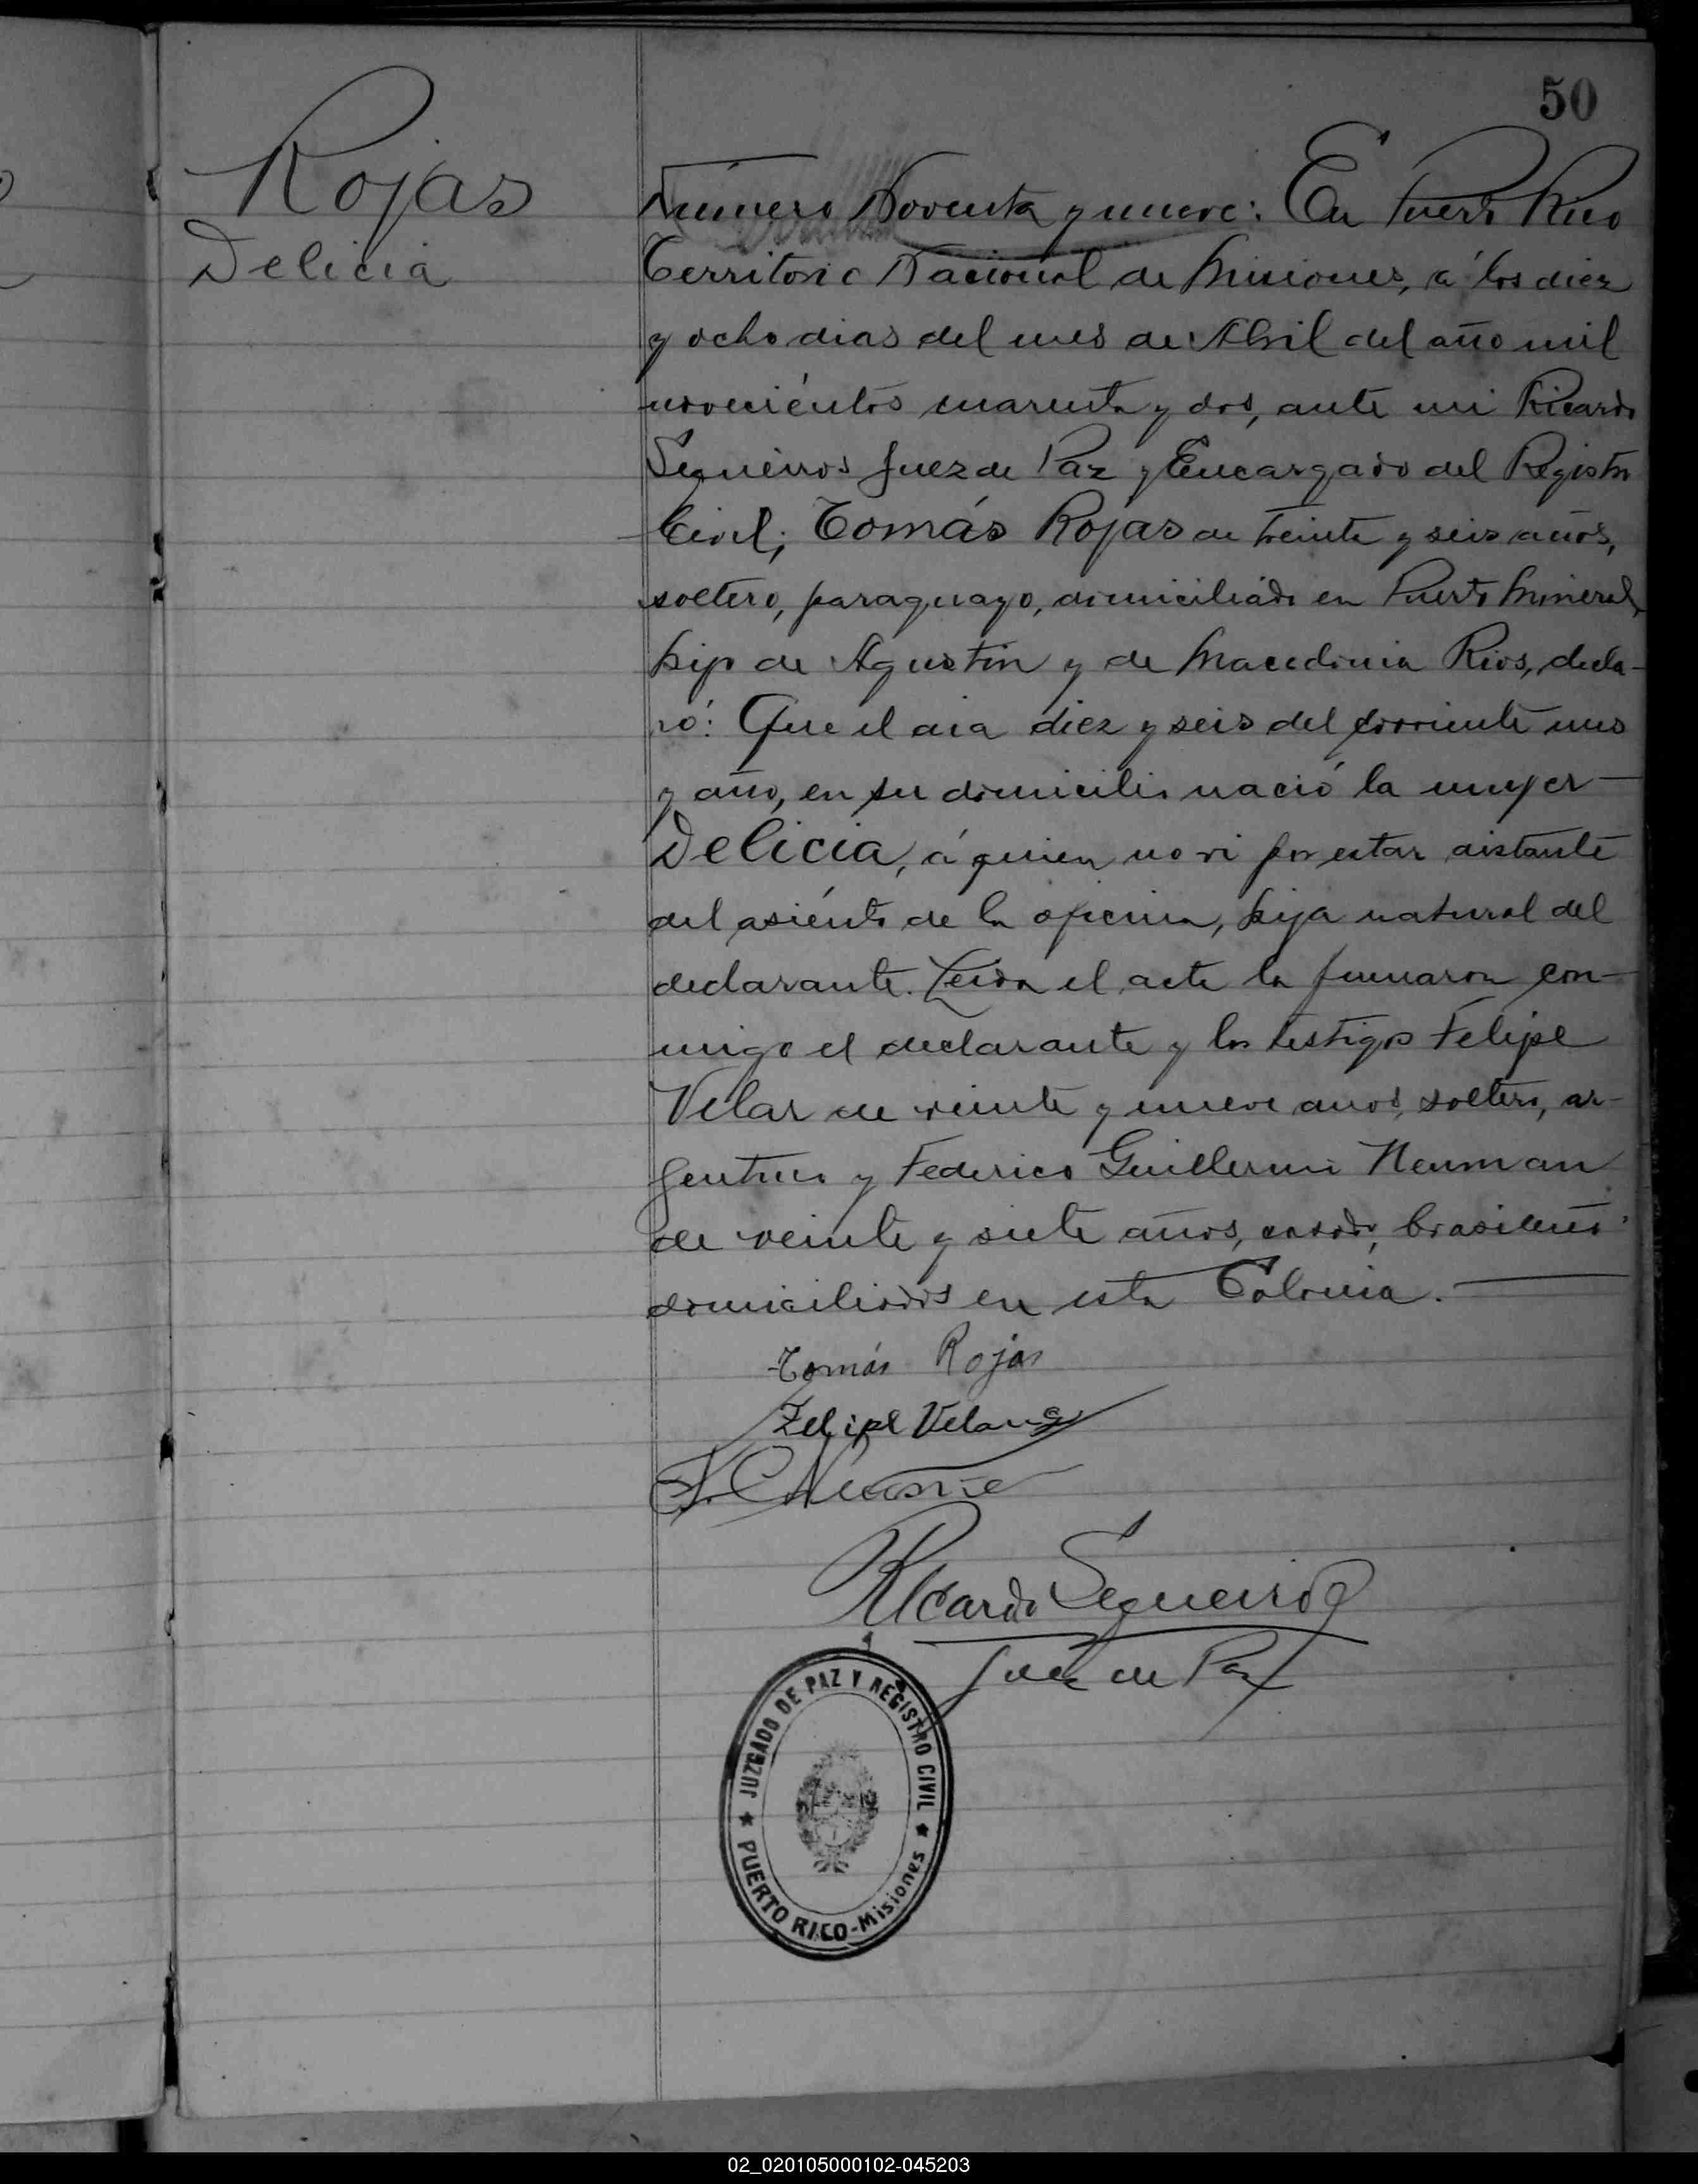 50
Rojas
Delicia
Número Noventa y nueve: En Puerto Rico
Territorio Nacional de Misiones, á los diez
y ocho dias del mes de Abril del año mil
noveciéntos cuarenta y dos, ante mi Ricardo
Sequeiros Juez de Paz y Encargado del Registro
Civil; Tomás Rojas de treinta y seis años,
soltero, paraguayo, domiciliado en Puerto Mineral,
hijo de Agustín y de Macedonia Rios, decla-
ró: Que el dia diez y seis del corriente mes
y año, en su domicilio nació la mujer
Delicia, á quien no vi por estar distante
del asiénto de la oficina, hija natural del
declarante. Leida el acta la firmaron con-
migo el declarante y los testigos Felipe
Velar de veinte y nueve años, soltero, ar-
gentino y Federico Guillermo Neuman
de veinte y siete años, casado, brasileño
domiciliados en esta Colonia.
Tomás Rojas
Felipe Velar
Ricardo Sequeiros
Juez de Paz
JUZGADO DE PAZ Y REGISTRO CIVIL
PUERTO RICO-Misiones
02_020105000102-045203